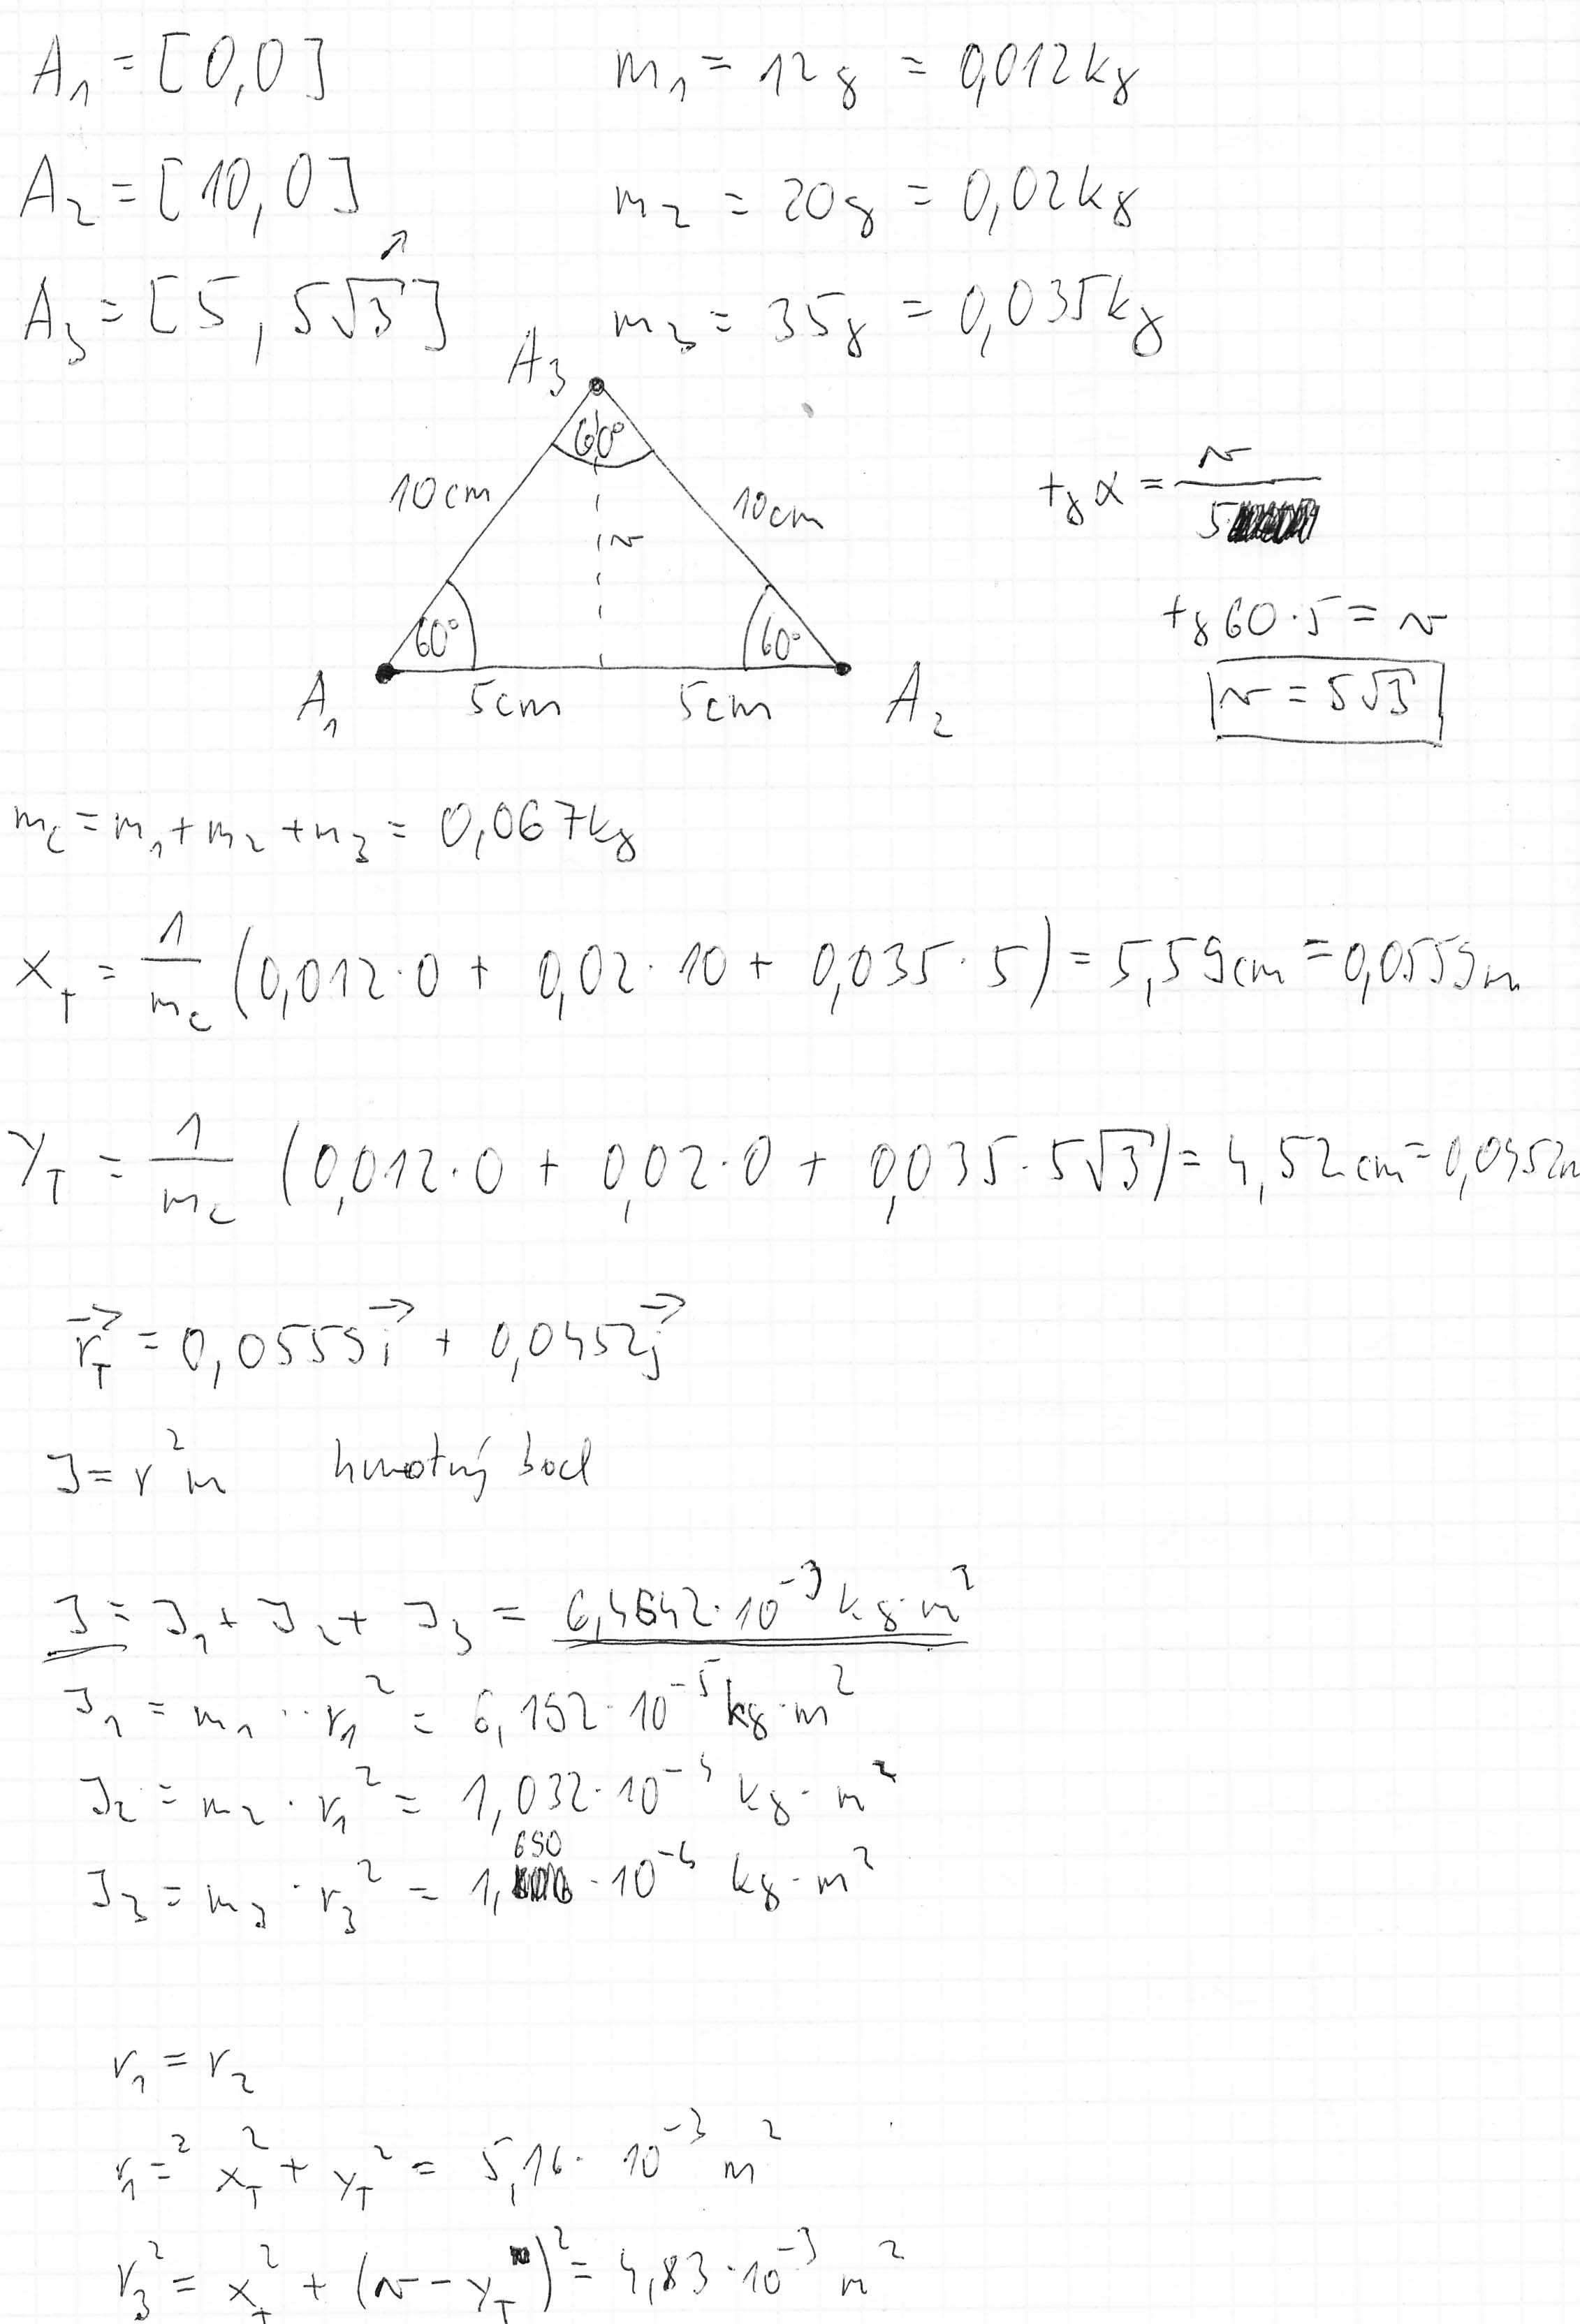 A₁ = [0,0] m₁ = 12g = 0,012kg
A₂ = [10,0] m₂ = 20g = 0,02kg
A₃ = [5, 5√3] m₃ = 35g = 0,035kg
A₃
60°
10cm 10cm
v
60° 60°
A₁ 5cm 5cm A₂
tg α = v / 5
tg 60 · 5 = v
v = 5√3
m_c = m₁ + m₂ + m₃ = 0,067kg
x_T = 1/m_c (0,012·0 + 0,02·10 + 0,035·5) = 5,59cm = 0,0559m
y_T = 1/m_c (0,012·0 + 0,02·0 + 0,035·5√3) = 4,52cm = 0,0452m
r_T = 0,0559i + 0,0452j
J = r²m hmotný bod
J = J₁ + J₂ + J₃ = 6,4642·10⁻³ kg·m²
J₁ = m₁ · r₁² = 6,192·10⁻⁵ kg·m²
J₂ = m₂ · r₁² = 1,032·10⁻⁴ kg·m²
J₃ = m₃ · r₃² = 1,690·10⁻⁴ kg·m²
r₁ = r₂
r₁² = x_T² + y_T² = 5,16·10⁻³ m²
r₃² = x_T² + (v − y_T)² = 4,83·10⁻³ m²